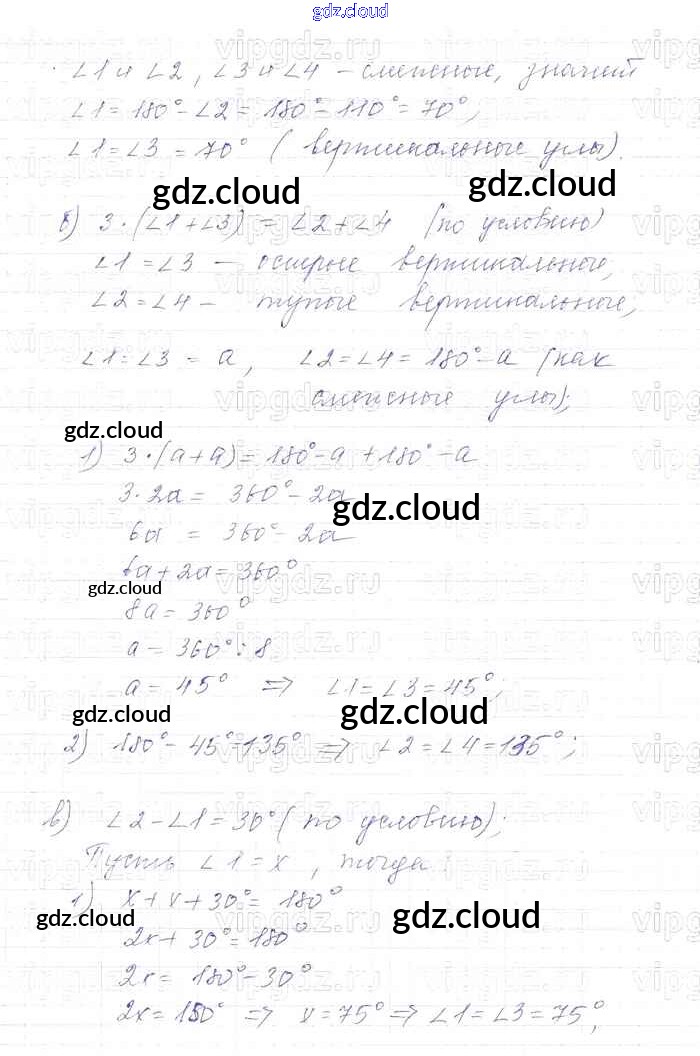 gdz.cloud
∠1 и ∠2, ∠3 и ∠4 – смежные, значит
∠1 = 180° – ∠2 = 180° – 110° = 70°;
∠1 = ∠3 = 70° (вертикальные углы).
gdz.cloud gdz.cloud
б) 3·(∠1+∠3) = ∠2+∠4 (по условию)
∠1 = ∠3 – острые вертикальные,
∠2 = ∠4 – тупые вертикальные;
∠1 = ∠3 = a, ∠2 = ∠4 = 180° – a (как
смежные углы);
gdz.cloud
1) 3·(a+a) = 180° – a + 180° – a
3·2a = 360° – 2a
gdz.cloud
6a = 360° – 2a
6a + 2a = 360°
gdz.cloud
8a = 360°
a = 360° : 8
a = 45° ⇒ ∠1 = ∠3 = 45°;
gdz.cloud gdz.cloud
2) 180° – 45° = 135° ⇒ ∠2 = ∠4 = 135°;
в) ∠2 – ∠1 = 30° (по условию);
Пусть ∠1 = x, тогда:
1) x + x + 30° = 180°
gdz.cloud gdz.cloud
2x + 30° = 180°
2x = 180° – 30°
2x = 150° ⇒ x = 75° ⇒ ∠1 = ∠3 = 75°;